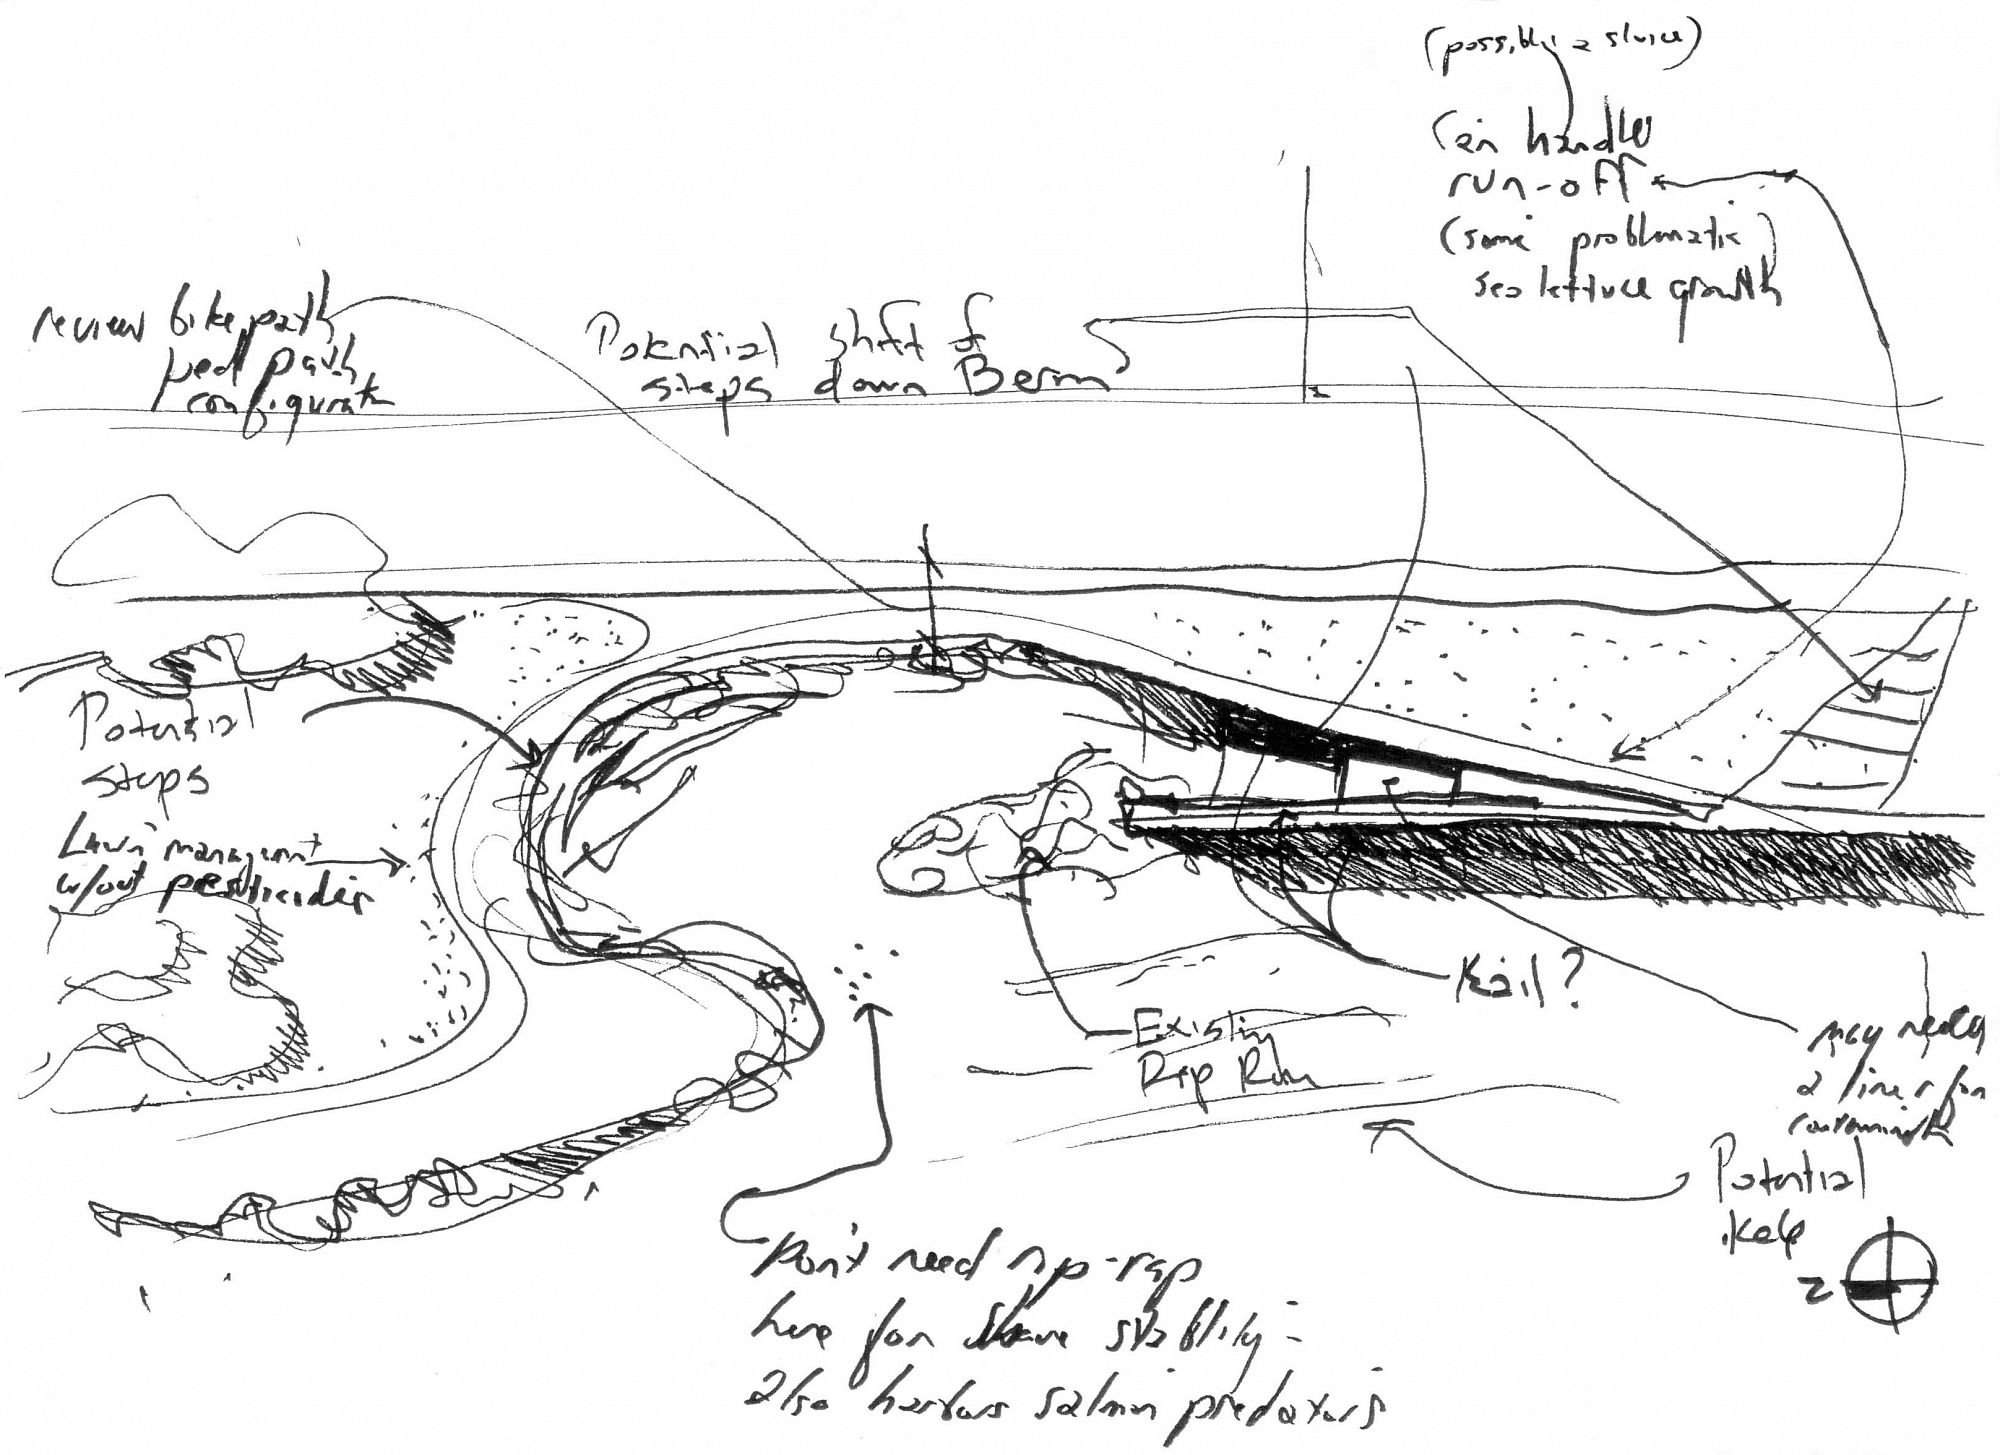 (possibly a sluice)
Can handle
run-off
(some problematic)
sea lettuce growth
review bike path
ped path
configurat
Potential shift of
steps down Berm
Potential
steps
Lawn managemt
w/out pesticides
Rail?
Existing
Rip Rap
may need
a liner for
Potential
kelp
Z
Don't need rip-rap
here for shore stability -
also harbors salmon predators